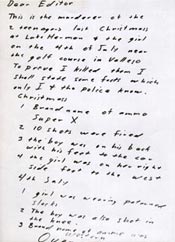 Dear Editor
This is the murderer of the
2 teenagers last Christmass
at Lake Herman & the girl
on the 4th of July near
the golf course in Vallejo
To prove I killed them I
shall state some facts which
only I & the police know.
Christmass
1 Brand name of ammo
Super X
2 10 shots were fired
3 the boy was on his back
with his feet to the car
4 the girl was on her right
side feet to the west
4th July
1 girl was wearing patterned
slacks
2 The boy was also shot in
the knee.
3 Brand name of ammo was
Western
Over